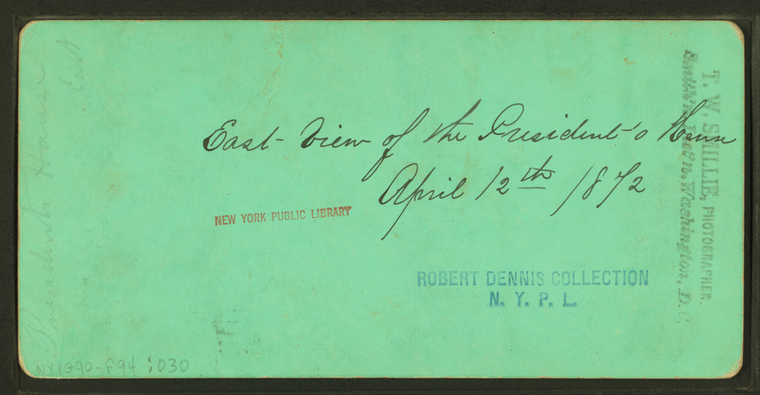 East View of the President's House
April 12th 1872
NEW YORK PUBLIC LIBRARY
ROBERT DENNIS COLLECTION
N. Y. P. L.
T. W. SMILLIE, PHOTOGRAPHER.
Washington, D.C.
President's House
East
:030